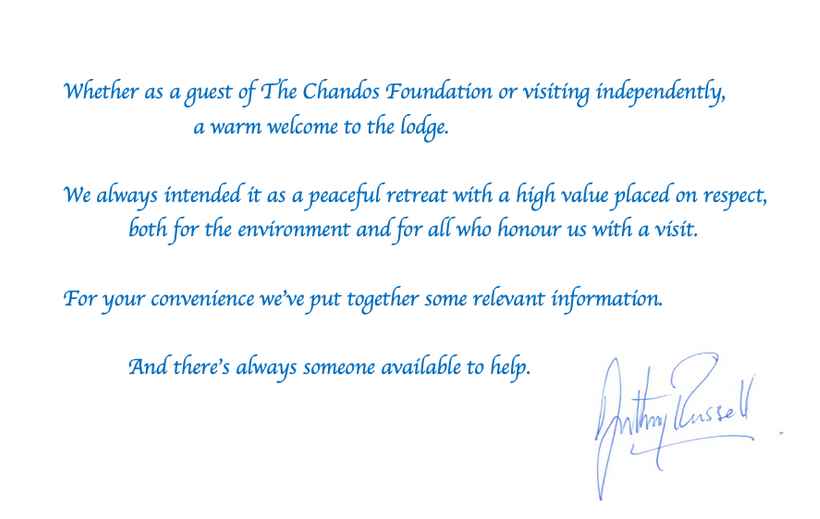 Whether as a guest of The Chandos Foundation or visiting independently,
a warm welcome to the lodge.
We always intended it as a peaceful retreat with a high value placed on respect,
both for the environment and for all who honour us with a visit.
For your convenience we've put together some relevant information.
And there's always someone available to help.
Anthony Russell